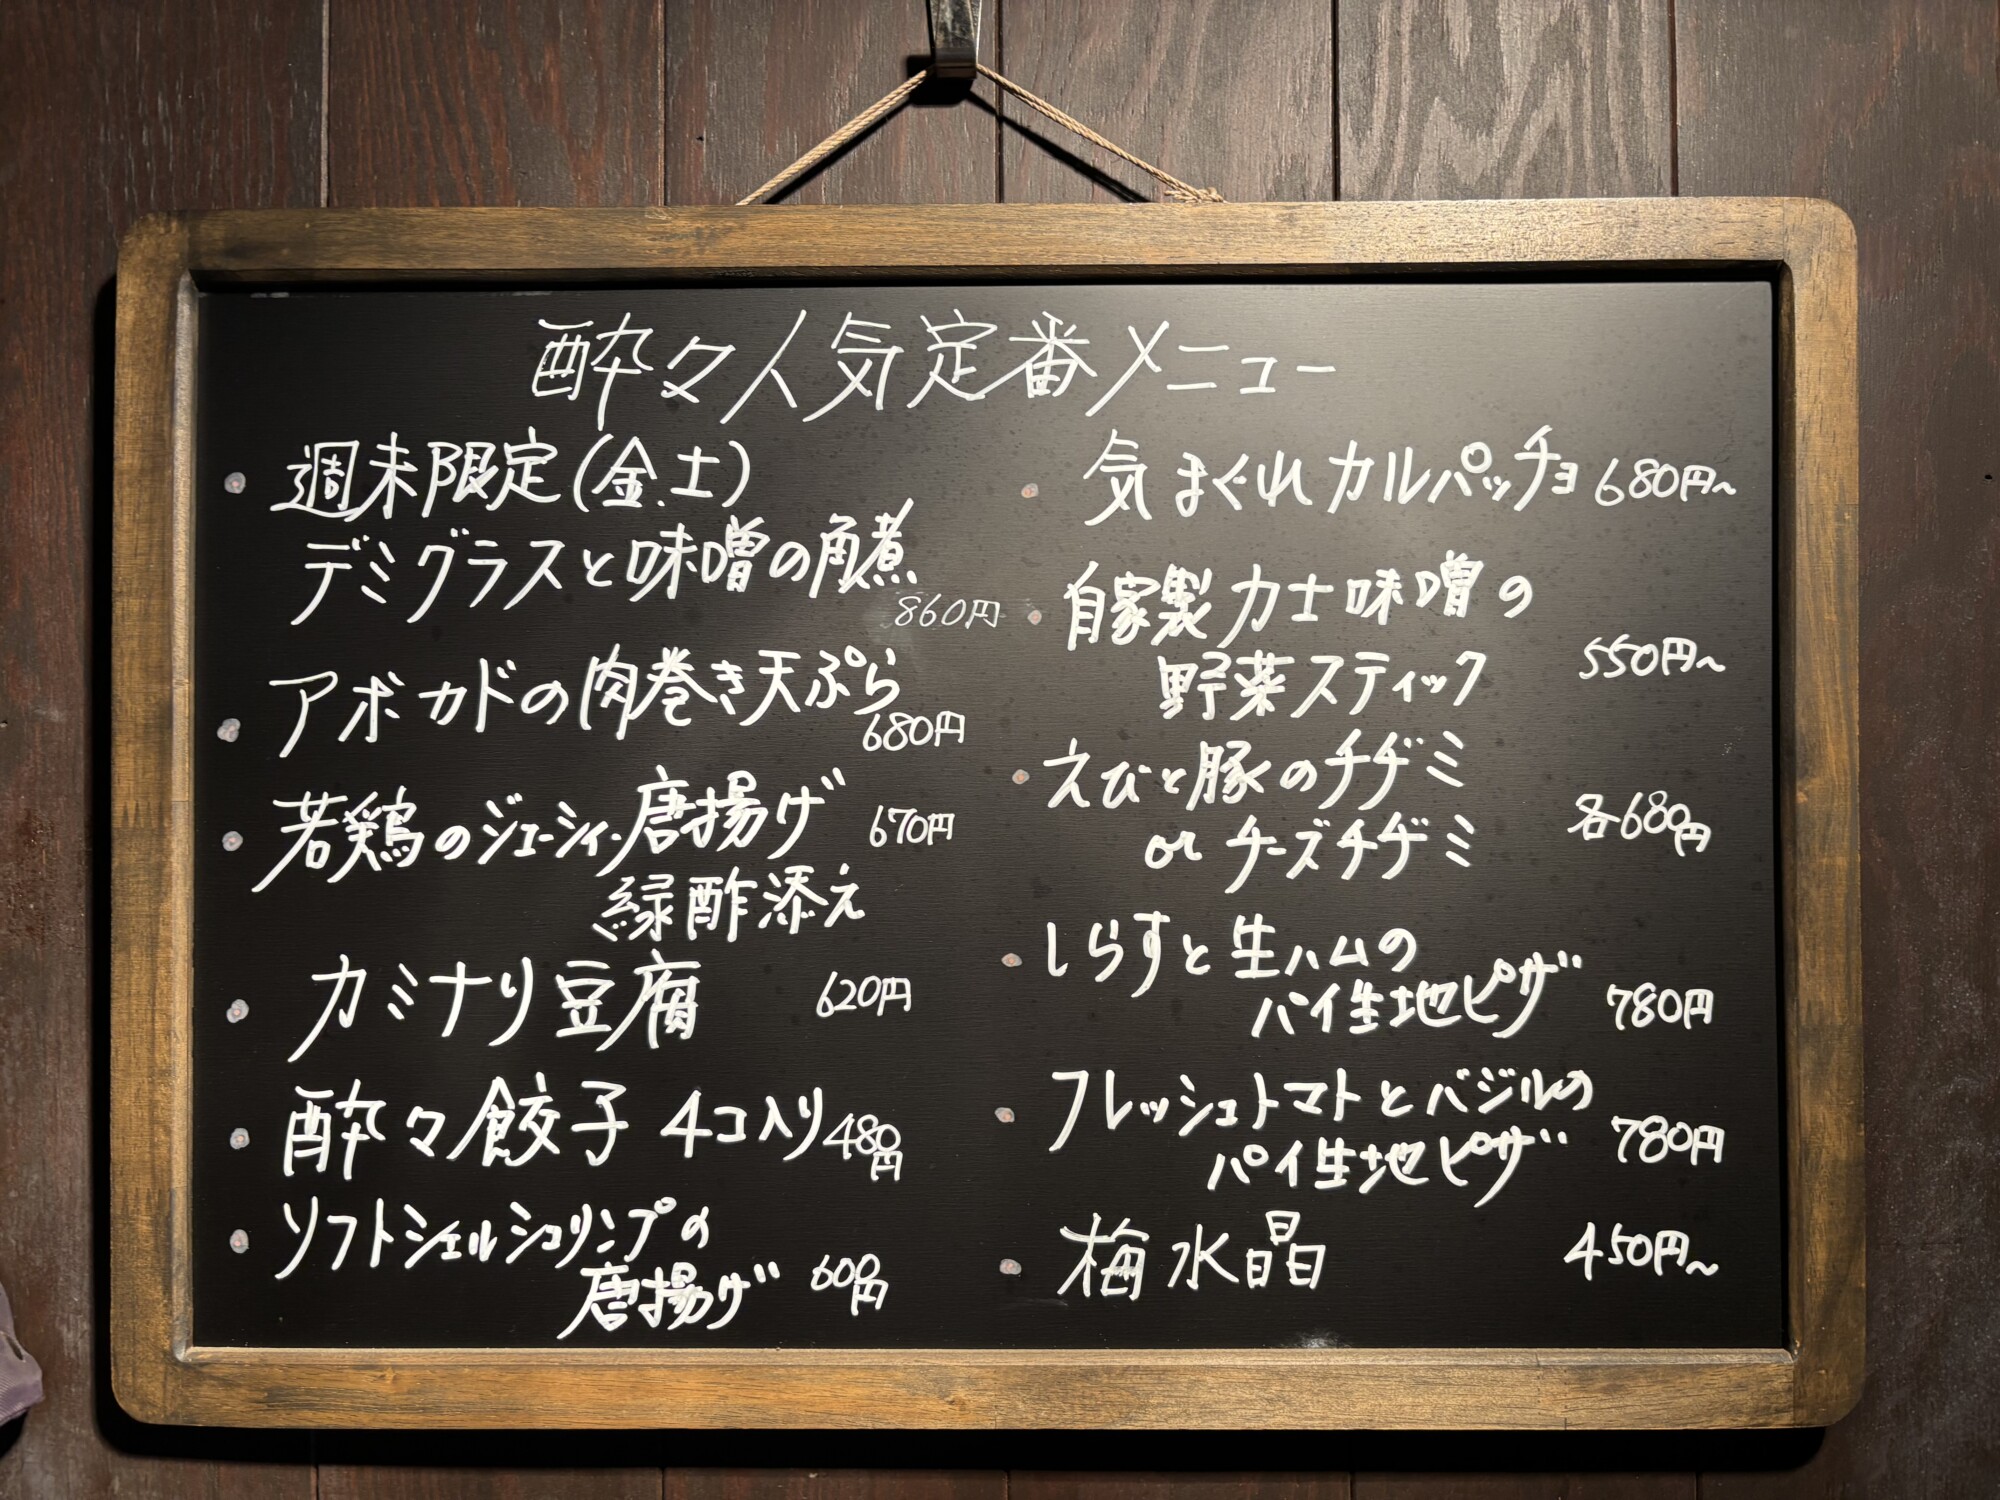 酔々人気定番メニュー
・週末限定(金.土)
デミグラスと味噌の角煮
860円
・アボカドの肉巻き天ぷら
680円
・若鶏のジューシィー唐揚げ 670円
緑酢添え
・カミナリ豆腐 620円
・酔々餃子 4コ入り 480円
・ソフトシェルシュリンプの
唐揚げ 600円
・気まぐれカルパッチョ 680円~
・自家製力士味噌の
野菜スティック 550円~
・えびと豚のチヂミ
or チーズチヂミ 各680円
・しらすと生ハムの
パイ生地ピザ 780円
・フレッシュトマトとバジルの
パイ生地ピザ 780円
・梅水晶 450円~